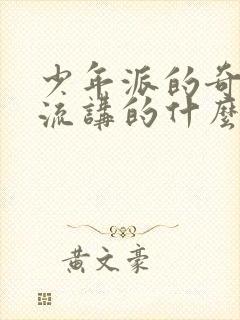 少年派的奇
流講的什麼
黃文豪